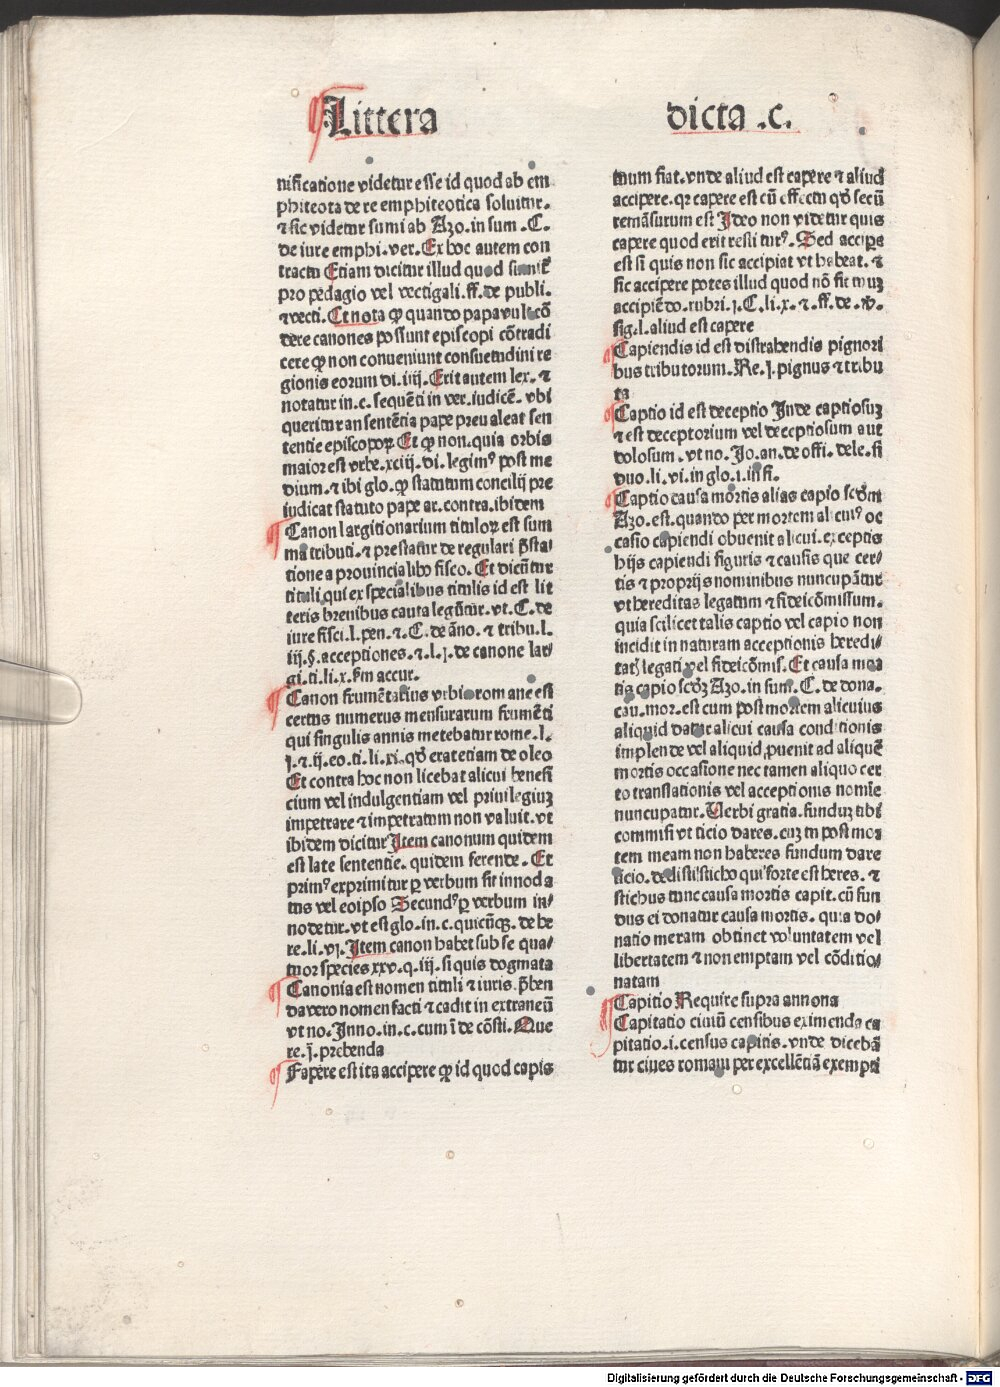 Littera dicta .c.
nificatione videtur esse id quod ab em
phiteota de re emphiteotica soluitur.
⁊ sic videtur sumi ab Azo. in sum .C.
de iure emphi. ver. Ex hoc autem con
tractu Etiam dicitur illud quod sumit᷑
pro pedagio vel vectigali. ff. de publi.
⁊ vecti. Et nota ꝙ quando papa vult cō
dere canones possunt episcopi cōtradi
cere ꝙ non conueniunt consuetudini re
gionis eorum di. iiij. Erit autem lex. ⁊
notatur in. c. sequēti in ver. iudicē. vbi
queritur an sentētia pape preualeat sen
tentie episcoporꝝ Et ꝙ non. quia orbis
maior est vrbe. xciij. di. legimꝰ post me
dium. ⁊ ibi glo. ꝙ statutum concilij pre
iudicat statuto pape ar. contra. ibidem
Canon largitionarium titulorꝝ est sum
ma tributi. ⁊ prestatur de regulari p̄sta
tione a prouincialibꝰ fisco. Et dicūtur
tituli qui ex specialibus titulis id est lit
teris breuibus cauta legūtur. vt. C. de
iure fisci. l. pen. ⁊. C. de āno. ⁊ tribu. l.
iij. §. acceptiones. ⁊. l. j. de canone lar⸗
gi. ti. li. x. ẜm accur.
Canon frumētarius vrbis romane est
certus numerus mensurarum frumēti
qui singulis annis metebatur rome. l.
j. ⁊ ij. eo. ti. li. xi. qđ erat etiam de oleo
Et contra hoc non licebat alicui benefi
cium vel indulgentiam vel priuilegiuꝫ
impetrare ⁊ impetratum non valuit. vt
ibidem dicitur Item canonum quidem
est late sententie. quidem ferende. Et
primꝰ exprimitur ꝑ verbum sit innoda
tus vel eoipso Secundꝰ ꝑ verbum in⸗
nodetur. vt est glo. in. c. quicūqꝫ. de he
re. li. vj. Item canon habet sub se qua⸗
tuor species xxv. q. iij. si quis dogmata
Canonia est nomen tituli ⁊ iuris. p̄ben
da vero nomen facti ⁊ cadit in extraneū
vt no. Inno. in. c. cum ī de cōsti. Que
re. j̄. prebenda
Capere est ita accipere ꝙ id quod capis
tuum fiat. vnde aliud est capere ⁊ aliud
accipere. qꝛ capere est cū effectu qđ secū
remāsurum est Ideo non videtur quis
capere quod erit restiturꝰ. Sed accipe
est si quis non sic accipiat vt habeat. ⁊
sic accipere potes illud quod nō fit tuuꝫ
accipiēdo. rubri. j. C. li. x. ⁊. ff. de. v̄.
sig. l. aliud est capere
Capiendis id est distrahendis pignori
bus tributorum. Re. j̄. pignus ⁊ tribu
ta
Captio id est deceptio Inde captiosuꝫ
⁊ est deceptorium vel deceptiosum aut
dolosum. vt no. Jo. an. de offi. dele. si
duo. li. vi. in glo. i. in fi.
Captio causa mortis alias capio scđm
Azo. est. quando per mortem alicuiꝰ oc
casio capiendi obuenit alicui. exceptis
hijs capiendi figuris ⁊ causis que cer⸗
tis ⁊ proprijs nominibus nuncupātur
vt hereditas legatum ⁊ fideicōmissum.
quia scilicet talis captio vel capio non
incidit in naturam acceptionis heredi⸗
tatꝭ legati vel fideicōmis. Et causa mor
tis capio scđꝫ Azo. in sum. C. de dona.
cau. mor. est cum post mortem alicuius
aliquid datur alicui causa conditionis
implende vel aliquid ꝓuenit ad aliquē
mortis occasione nec tamen aliquo cer
to translationis vel acceptionis nomīe
nuncupatur. Verbi gratia. funduꝫ tibi
commisi vt ticio dares. cuꝫ tu post mor
tem meam non haberes fundum dare
ticio. dedisti sticho qui forte est heres. ⁊
stichus tunc causa mortis capit. cū fun
dus ei donatur causa mortis. quia do⸗
natio meram obtinet voluntatem vel
libertatem ⁊ non emptam vel cōditio⸗
natam
Capitio Require supra annona
Capitatio ciuiū censibus eximenda ca
pitatio. i. census capitis. vnde dicebā
tur ciues romani per excellētiā exempti
Digitalisierung gefördert durch die Deutsche Forschungsgemeinschaft - DFG